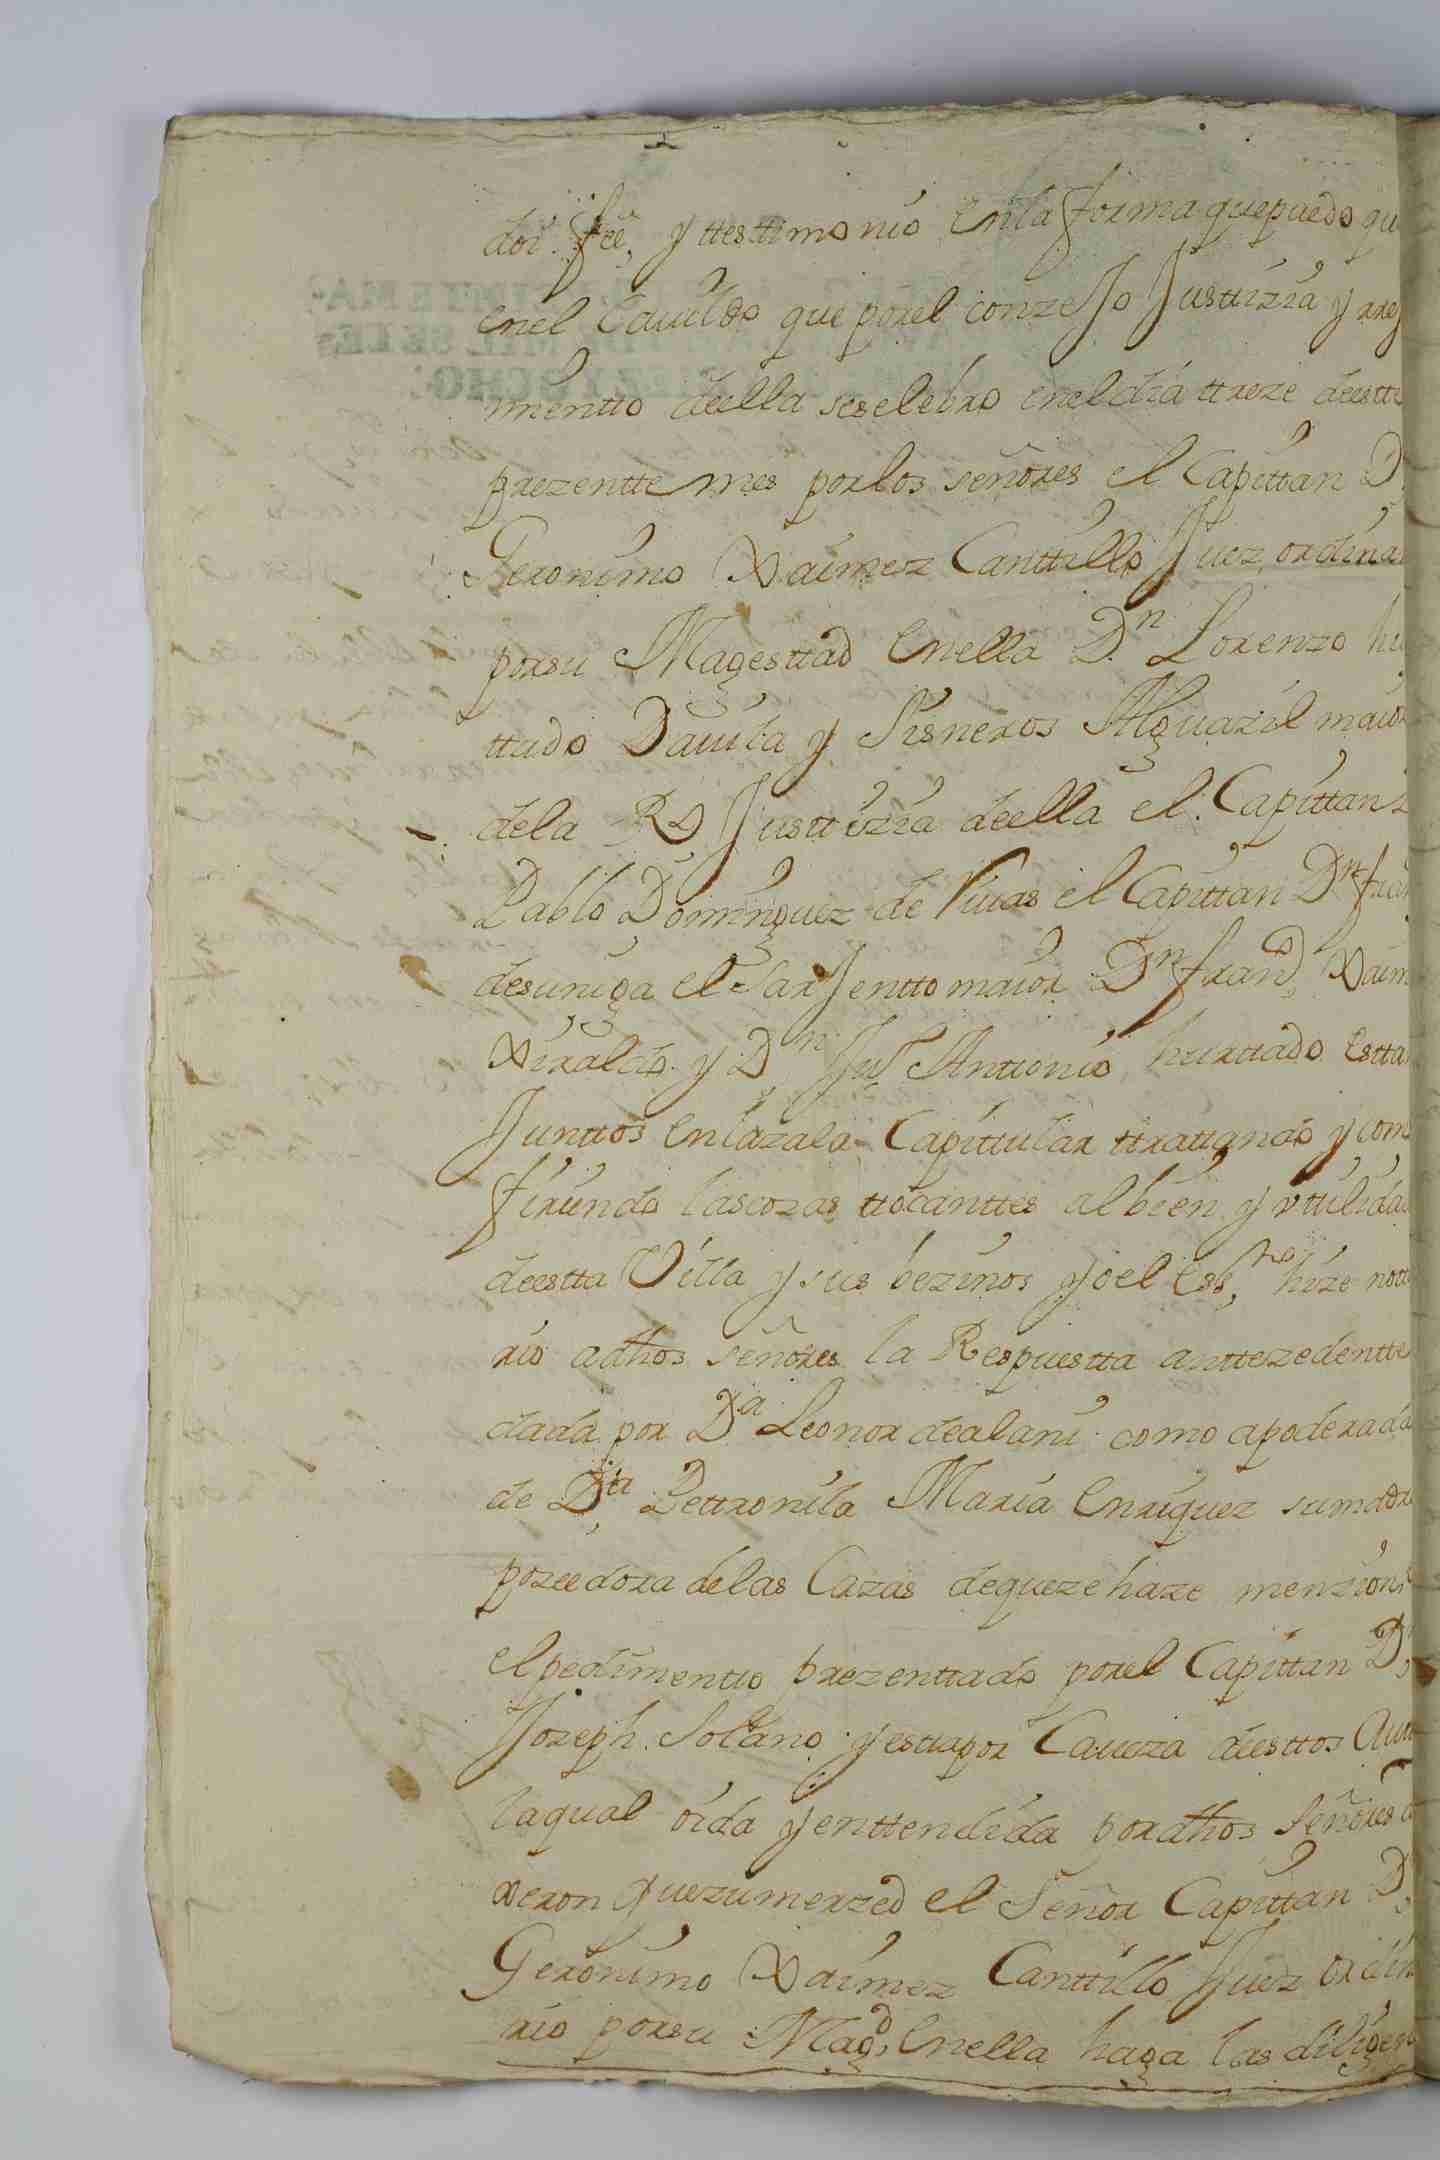 doi fee, y ttesttimonio Enla forma quepuedo qu
enel Cavildo que porel conzejo Justtizia y rrej
mientto deella seselebro eneldia ttreze deestte
prezentte mes porlos señores el Capittan D.
Geronimo Xaimez Canttillo Juez ordina
porsu Magesttad Enella D.n Lorenzo hu
ttado Dauila y Sisneros Alguazil maior
dela Rl Justtizia deella el Capittan
Pablo Dominguez de Viuas el Capittan Dn fran
desuniga el Sarjentto maior Dn franco Xaim
Xiraldo y Dn Jul Anttonio hurttado Estta
Junttos Enlazala Capittular ttrattando y com
firiendo lascozas ttocanttes albien y vttilidad
deestta Villa y sus bezinos yoel Essno hize notto
rio adhos señores la Respuestta anttezedentte
dada por Da Leonor dealani como apoderada
de Da Pettronila Maria Enriquez sumadre
pozeedora delas Cazas dequezehaze menzion
elpedimentto prezenttado porel Capittan Dn
Joseph Solano yestta por Caueza deesttos Auto
laqual oida yenttendida pordhos Señores
xeron quezumerzed el Señor Capittan D,
Geronimo Xaimez Canttillo Juez ordin
rio porsu Magd, Enella haga las diligen